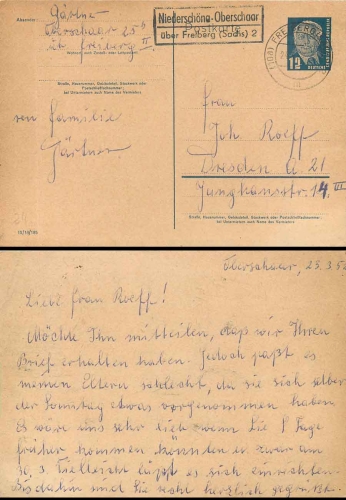 Absender:
Gärtner
Oberschaar 25b
üb. Freiberg II
Wohnort, auch Zustell- oder Leitpostamt
Straße, Hausnummer, Gebäudeteil, Stockwerk oder Postschließfachnummer;
bei Untermietern auch Name des Vermieters
Niederschöna-Oberschaar
über Freiberg (Sachs) 2
Postkarte
12
von Familie
Gärtner
Frau
Joh. Roeff
Dresden A 21
Junghansstr. 14 III
Straße, Hausnummer, Gebäudeteil, Stockwerk oder Postschließfachnummer;
bei Untermietern auch Name des Vermieters
Oberschaar, 23.3.
Liebe Frau Roeff!
Möchte Ihn mitteilen, daß wir Ihren
Brief erhalten haben. Jedoch paßt es
meinen Eltern schlecht, da sie sich selber
der Sonntag etwas vorgenommen haben.
Es wäre uns sehr lieb wenn Sie 8 Tage
früher kommen könnten u. zwar am
30. 3. Vielleicht läßt es sich einrichten.
Bis dahin sind Sie recht herzlich gegrüßt